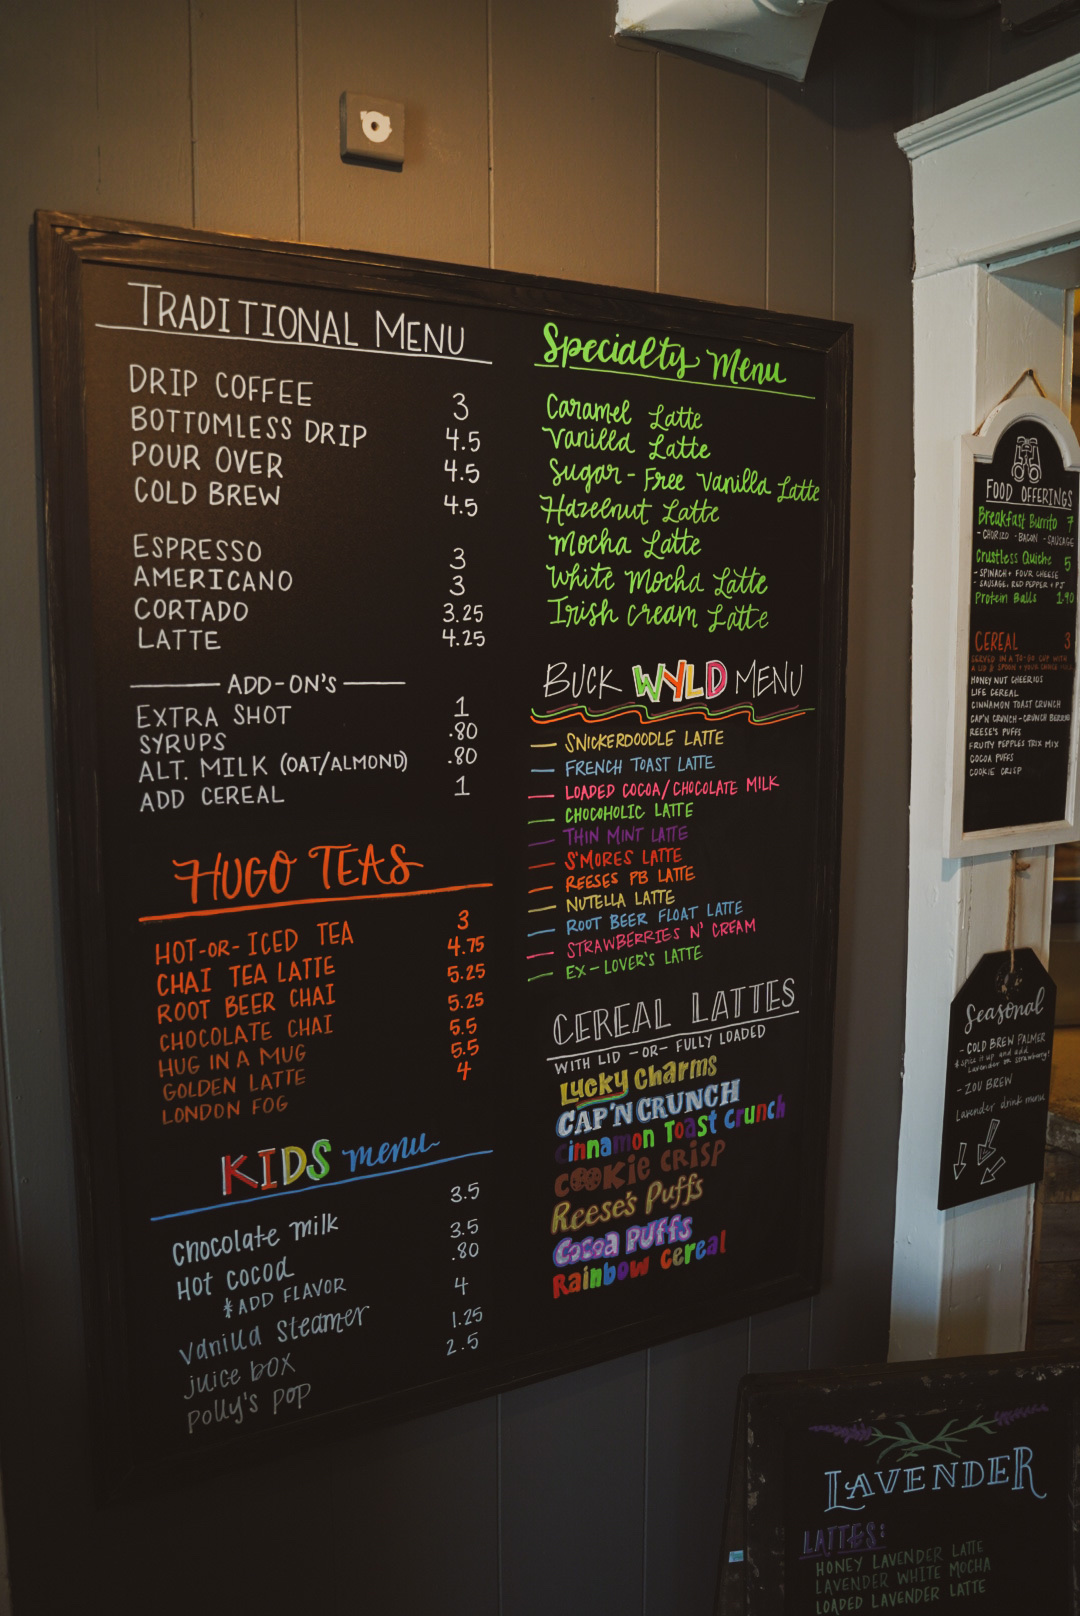 TRADITIONAL MENU
DRIP COFFEE 3
BOTTOMLESS DRIP 4.5
POUR OVER 4.5
COLD BREW 4.5
ESPRESSO 3
AMERICANO 3
CORTADO 3.25
LATTE 4.25
ADD-ON'S
EXTRA SHOT 1
SYRUPS .80
ALT. MILK (OAT/ALMOND) .80
ADD CEREAL 1
HUGO TEAS
HOT-OR-ICED TEA 3
CHAI TEA LATTE 4.75
ROOT BEER CHAI 5.25
CHOCOLATE CHAI 5.25
HUG IN A MUG 5.5
GOLDEN LATTE 5.5
LONDON FOG 4
KIDS menu
Chocolate milk 3.5
Hot cocoa 3.5
*ADD FLAVOR .80
Vanilla Steamer 4
juice box 1.25
Polly's pop 2.5
Specialty Menu
Caramel Latte
Vanilla Latte
Sugar-Free Vanilla Latte
Hazelnut Latte
Mocha Latte
White Mocha Latte
Irish Cream Latte
BUCK WYLD MENU
— SNICKERDOODLE LATTE
— FRENCH TOAST LATTE
— LOADED COCOA/CHOCOLATE MILK
— CHOCOHOLIC LATTE
— THIN MINT LATTE
— S'MORES LATTE
— REESES PB LATTE
— NUTELLA LATTE
— ROOT BEER FLOAT LATTE
— STRAWBERRIES N' CREAM
— EX-LOVER'S LATTE
CEREAL LATTES
WITH LID -OR- FULLY LOADED
Lucky Charms
CAP'N CRUNCH
Cinnamon Toast Crunch
COOKIE CRISP
Reese's Puffs
Cocoa PUFFS
Rainbow Cereal
FOOD OFFERINGS
Breakfast Burrito 7
- CHORIZO - BACON - SAUSAGE
Crustless Quiche 5
- SPINACH + FOUR CHEESE
- SAUSAGE, RED PEPPER + PJ
Protein Balls 1.90
CEREAL 3
SERVED IN A TO-GO CUP WITH
A LID & SPOON + YOUR CHOICE
HONEY NUT CHEERIOS
LIFE CEREAL
CINNAMON TOAST CRUNCH
CAP'N CRUNCH - CRUNCH BERRIES
REESE'S PUFFS
FRUITY PEPPLES TRIX MIX
COCOA PUFFS
COOKIE CRISP
Seasonal
- COLD BREW PALMER
*spice it up and add
Lavender or Strawberry!
- ZOU BREW
Lavender drink menu
LAVENDER
LATTES:
HONEY LAVENDER LATTE
LAVENDER WHITE MOCHA
LOADED LAVENDER LATTE